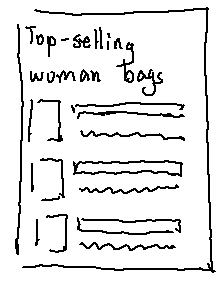 Top-selling
woman bags